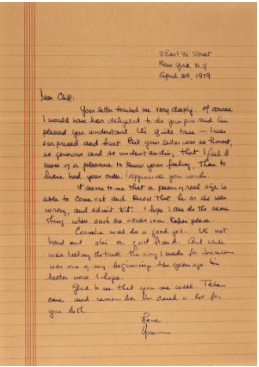 East 72 Street
New York N.Y
April 29, 1979
Dear Cliff:
Your letter touched me very deeply. Of course
I would have been delighted to do your pin and I'm
pleased you understand. It's quite true — I was
surprised and hurt. But your letter was so honest,
so generous and so understanding that I find it
more of a pleasure to know your feeling, than to
have had your order. I appreciate your words.
It seems to me that a person of real size is
able to come out and know that he or she was
wrong, and admit it. I hope I can do the same
thing when such an occasion takes place.
will do a good job.
hand and also a good friend. And while
we're telling the truth, the ring I made for
was one of my beginning ten years ago
better now I hope.
Glad to see that you are well. Take
care and remember we cared a lot for
you both
Love